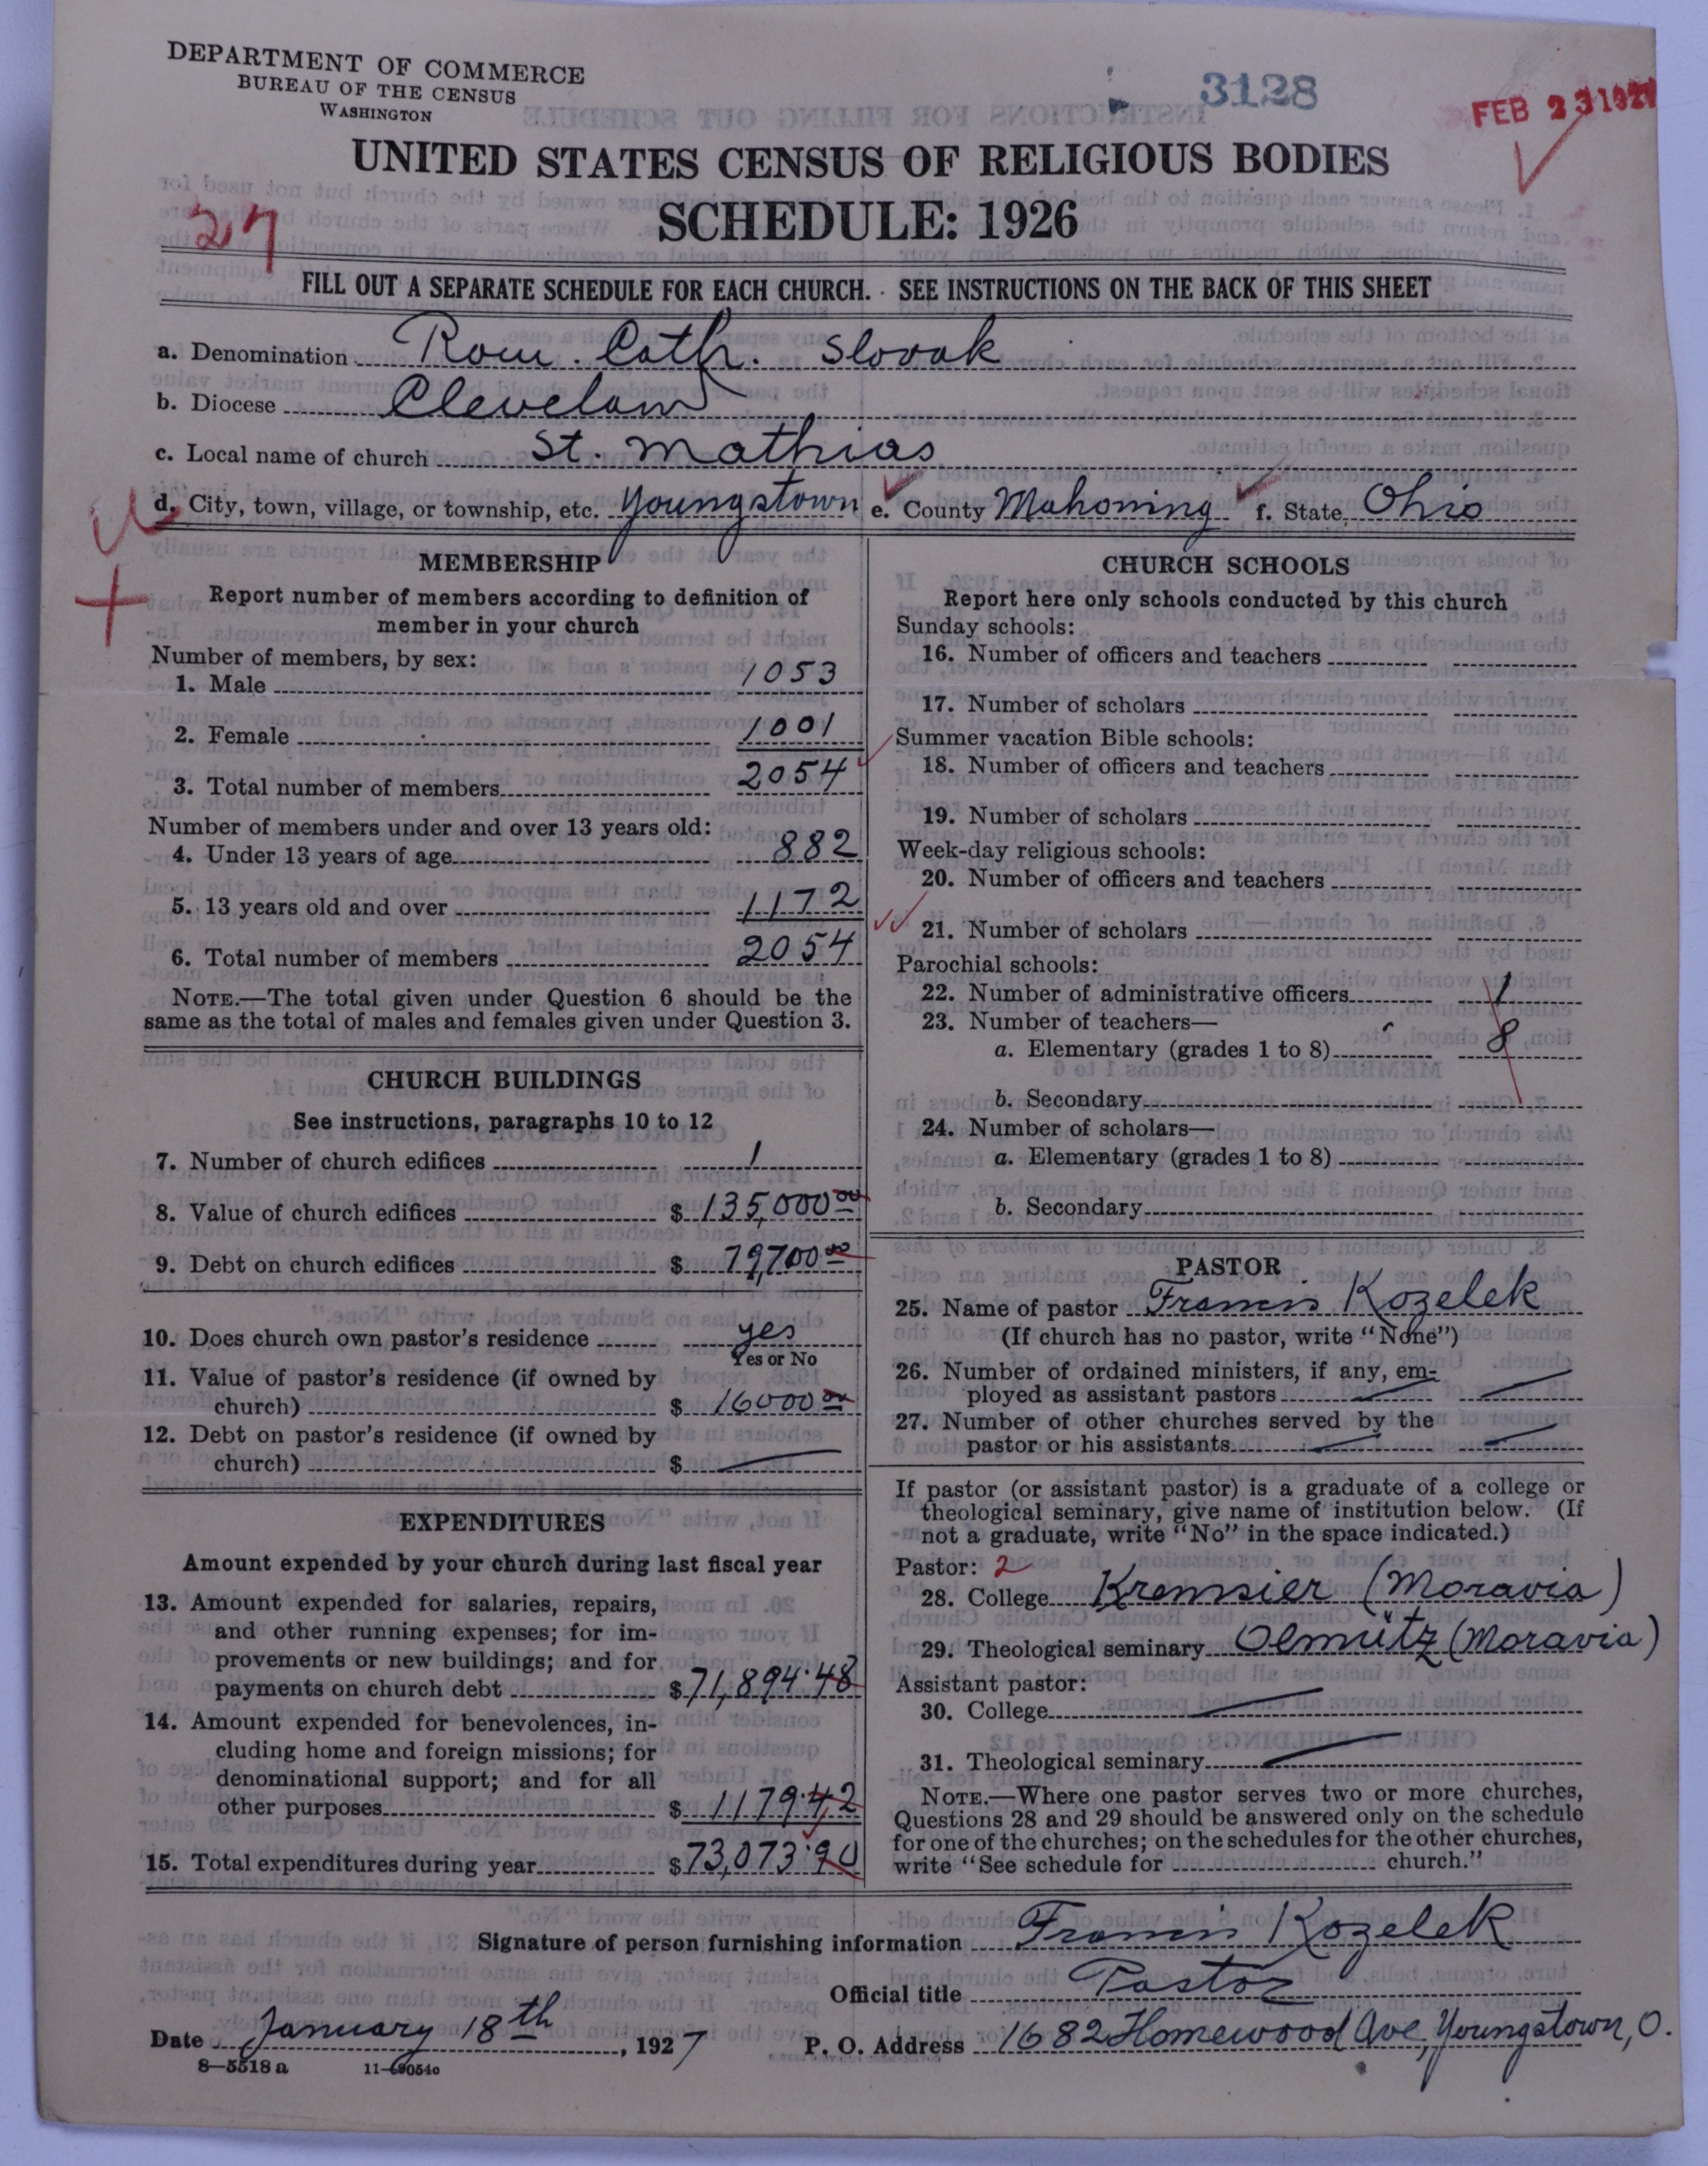 DEPARTMENT OF COMMERCE
BUREAU OF THE CENSUS
WASHINGTON
3128
FEB 23 1927
UNITED STATES CENSUS OF RELIGIOUS BODIES
SCHEDULE: 1926
27
FILL OUT A SEPARATE SCHEDULE FOR EACH CHURCH. SEE INSTRUCTIONS ON THE BACK OF THIS SHEET
a. Denomination Rom. Cath. Slovak
b. Diocese Cleveland
c. Local name of church St. Mathias
d. City, town, village, or township, etc. Youngstown e. County Mahoning f. State Ohio
MEMBERSHIP
Report number of members according to definition of
member in your church
Number of members, by sex:
1. Male 1053
2. Female 1001
3. Total number of members 2054
Number of members under and over 13 years old:
4. Under 13 years of age 882
5. 13 years old and over 1172
6. Total number of members 2054
NOTE.—The total given under Question 6 should be the
same as the total of males and females given under Question 3.
CHURCH BUILDINGS
See instructions, paragraphs 10 to 12
7. Number of church edifices 1
8. Value of church edifices $ 135,000 00
9. Debt on church edifices $ 79,700 00
10. Does church own pastor's residence yes
Yes or No
11. Value of pastor's residence (if owned by
church) $ 16000 00
12. Debt on pastor's residence (if owned by
church) $ —
EXPENDITURES
Amount expended by your church during last fiscal year
13. Amount expended for salaries, repairs,
and other running expenses; for im-
provements or new buildings; and for
payments on church debt $ 71,894.48
14. Amount expended for benevolences, in-
cluding home and foreign missions; for
denominational support; and for all
other purposes $ 1179.42
15. Total expenditures during year $ 73,073.90
CHURCH SCHOOLS
Report here only schools conducted by this church
Sunday schools:
16. Number of officers and teachers
17. Number of scholars
Summer vacation Bible schools:
18. Number of officers and teachers
19. Number of scholars
Week-day religious schools:
20. Number of officers and teachers
21. Number of scholars
Parochial schools:
22. Number of administrative officers 1
23. Number of teachers—
a. Elementary (grades 1 to 8) 8
b. Secondary
24. Number of scholars—
a. Elementary (grades 1 to 8)
b. Secondary
PASTOR
25. Name of pastor Francis Kozelek
(If church has no pastor, write "None")
26. Number of ordained ministers, if any, em-
ployed as assistant pastors — —
27. Number of other churches served by the
pastor or his assistants — —
If pastor (or assistant pastor) is a graduate of a college or
theological seminary, give name of institution below. (If
not a graduate, write "No" in the space indicated.)
Pastor: 2
28. College Kremsier (Moravia)
29. Theological seminary Olmütz (Moravia)
Assistant pastor:
30. College —
31. Theological seminary —
NOTE.—Where one pastor serves two or more churches,
Questions 28 and 29 should be answered only on the schedule
for one of the churches; on the schedules for the other churches,
write "See schedule for church."
Signature of person furnishing information Francis Kozelek
Official title Pastor
Date January 18th, 1927 P. O. Address 1682 Homewood Ave, Youngstown, O.
8—5518 a